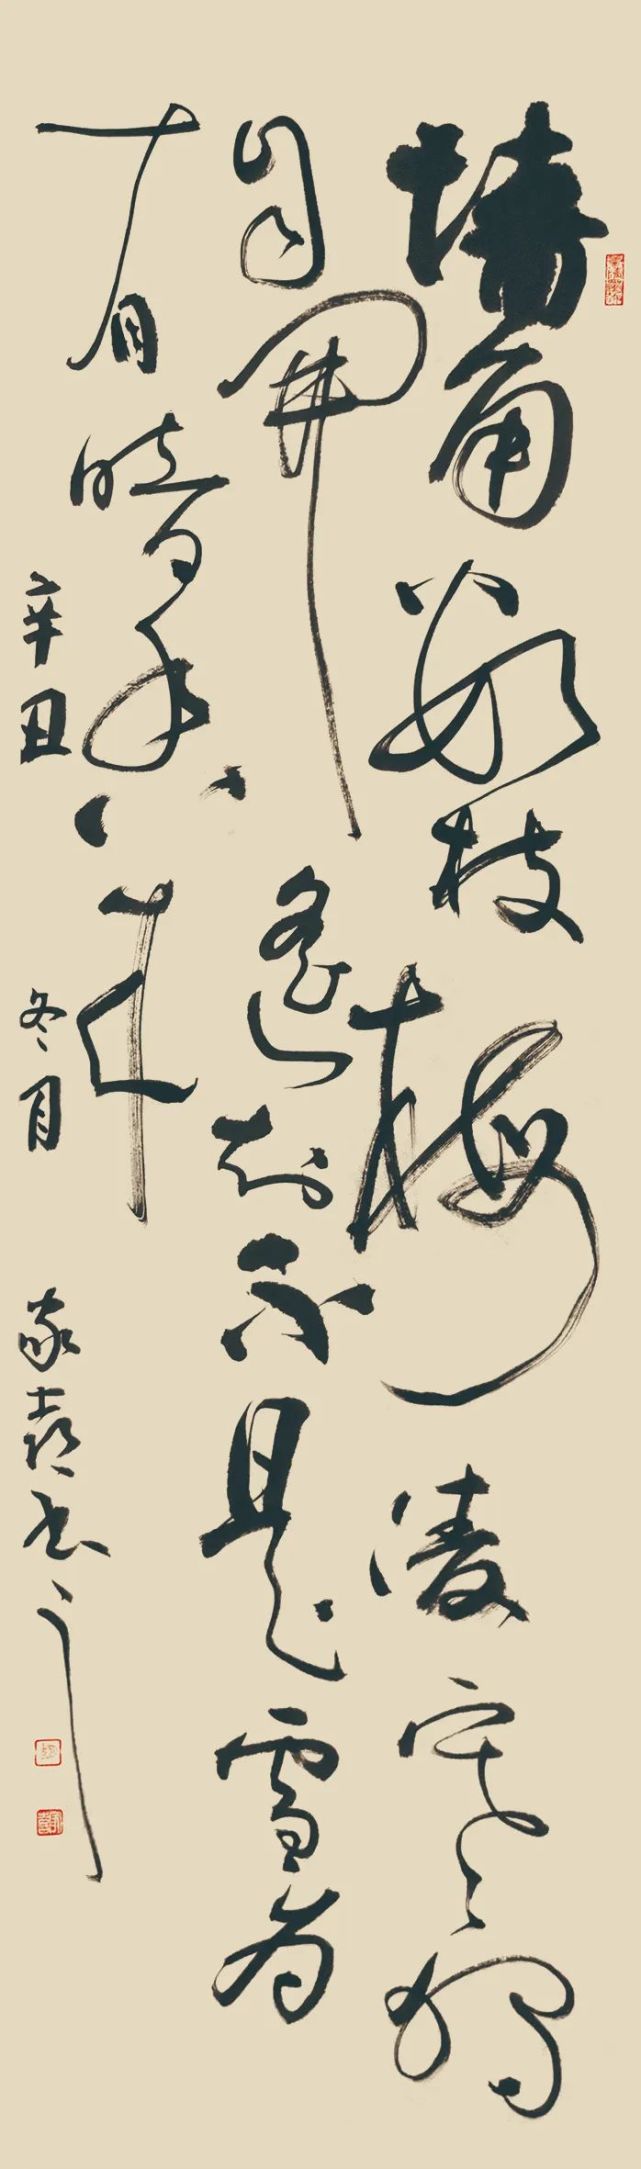 墙角数枝梅凌寒独
自开遥知不是雪为
有暗香来
辛丑冬月家喜书